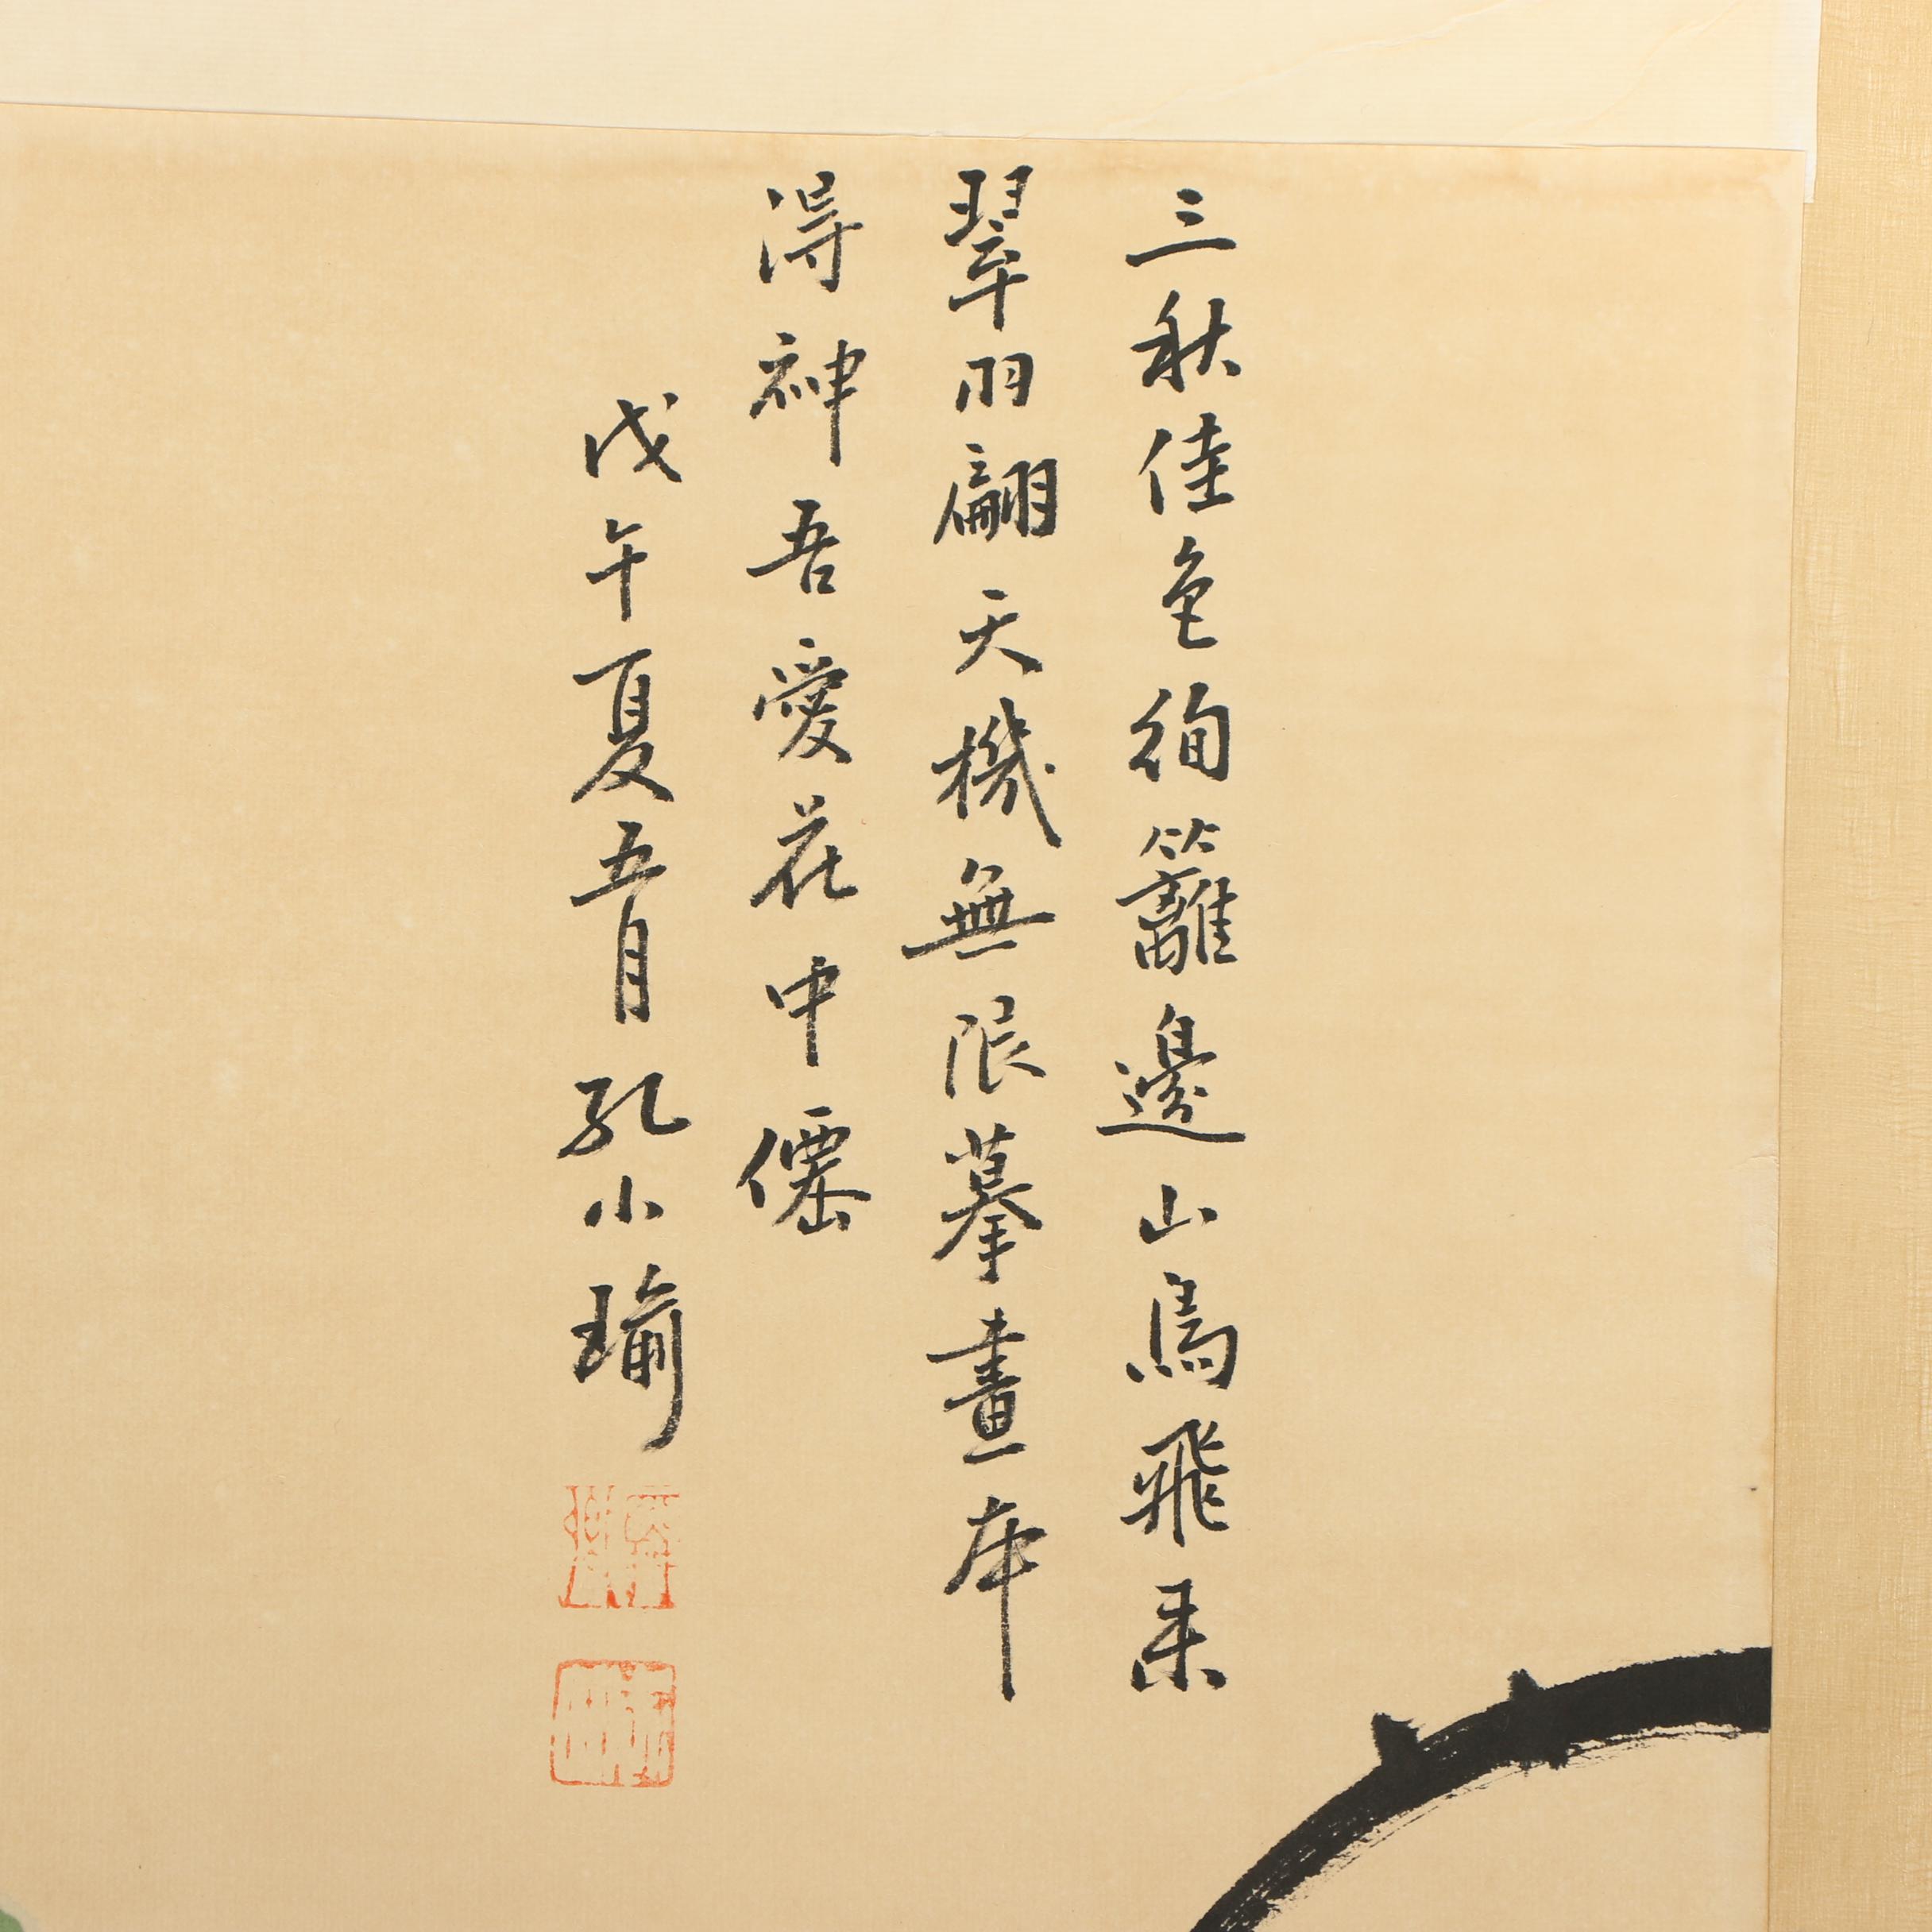 三秋佳色絢籬邊山鳥飛來
翠羽翩天機無限摹畫本
得神吾愛花中僊
戊午夏五月孔小瑜